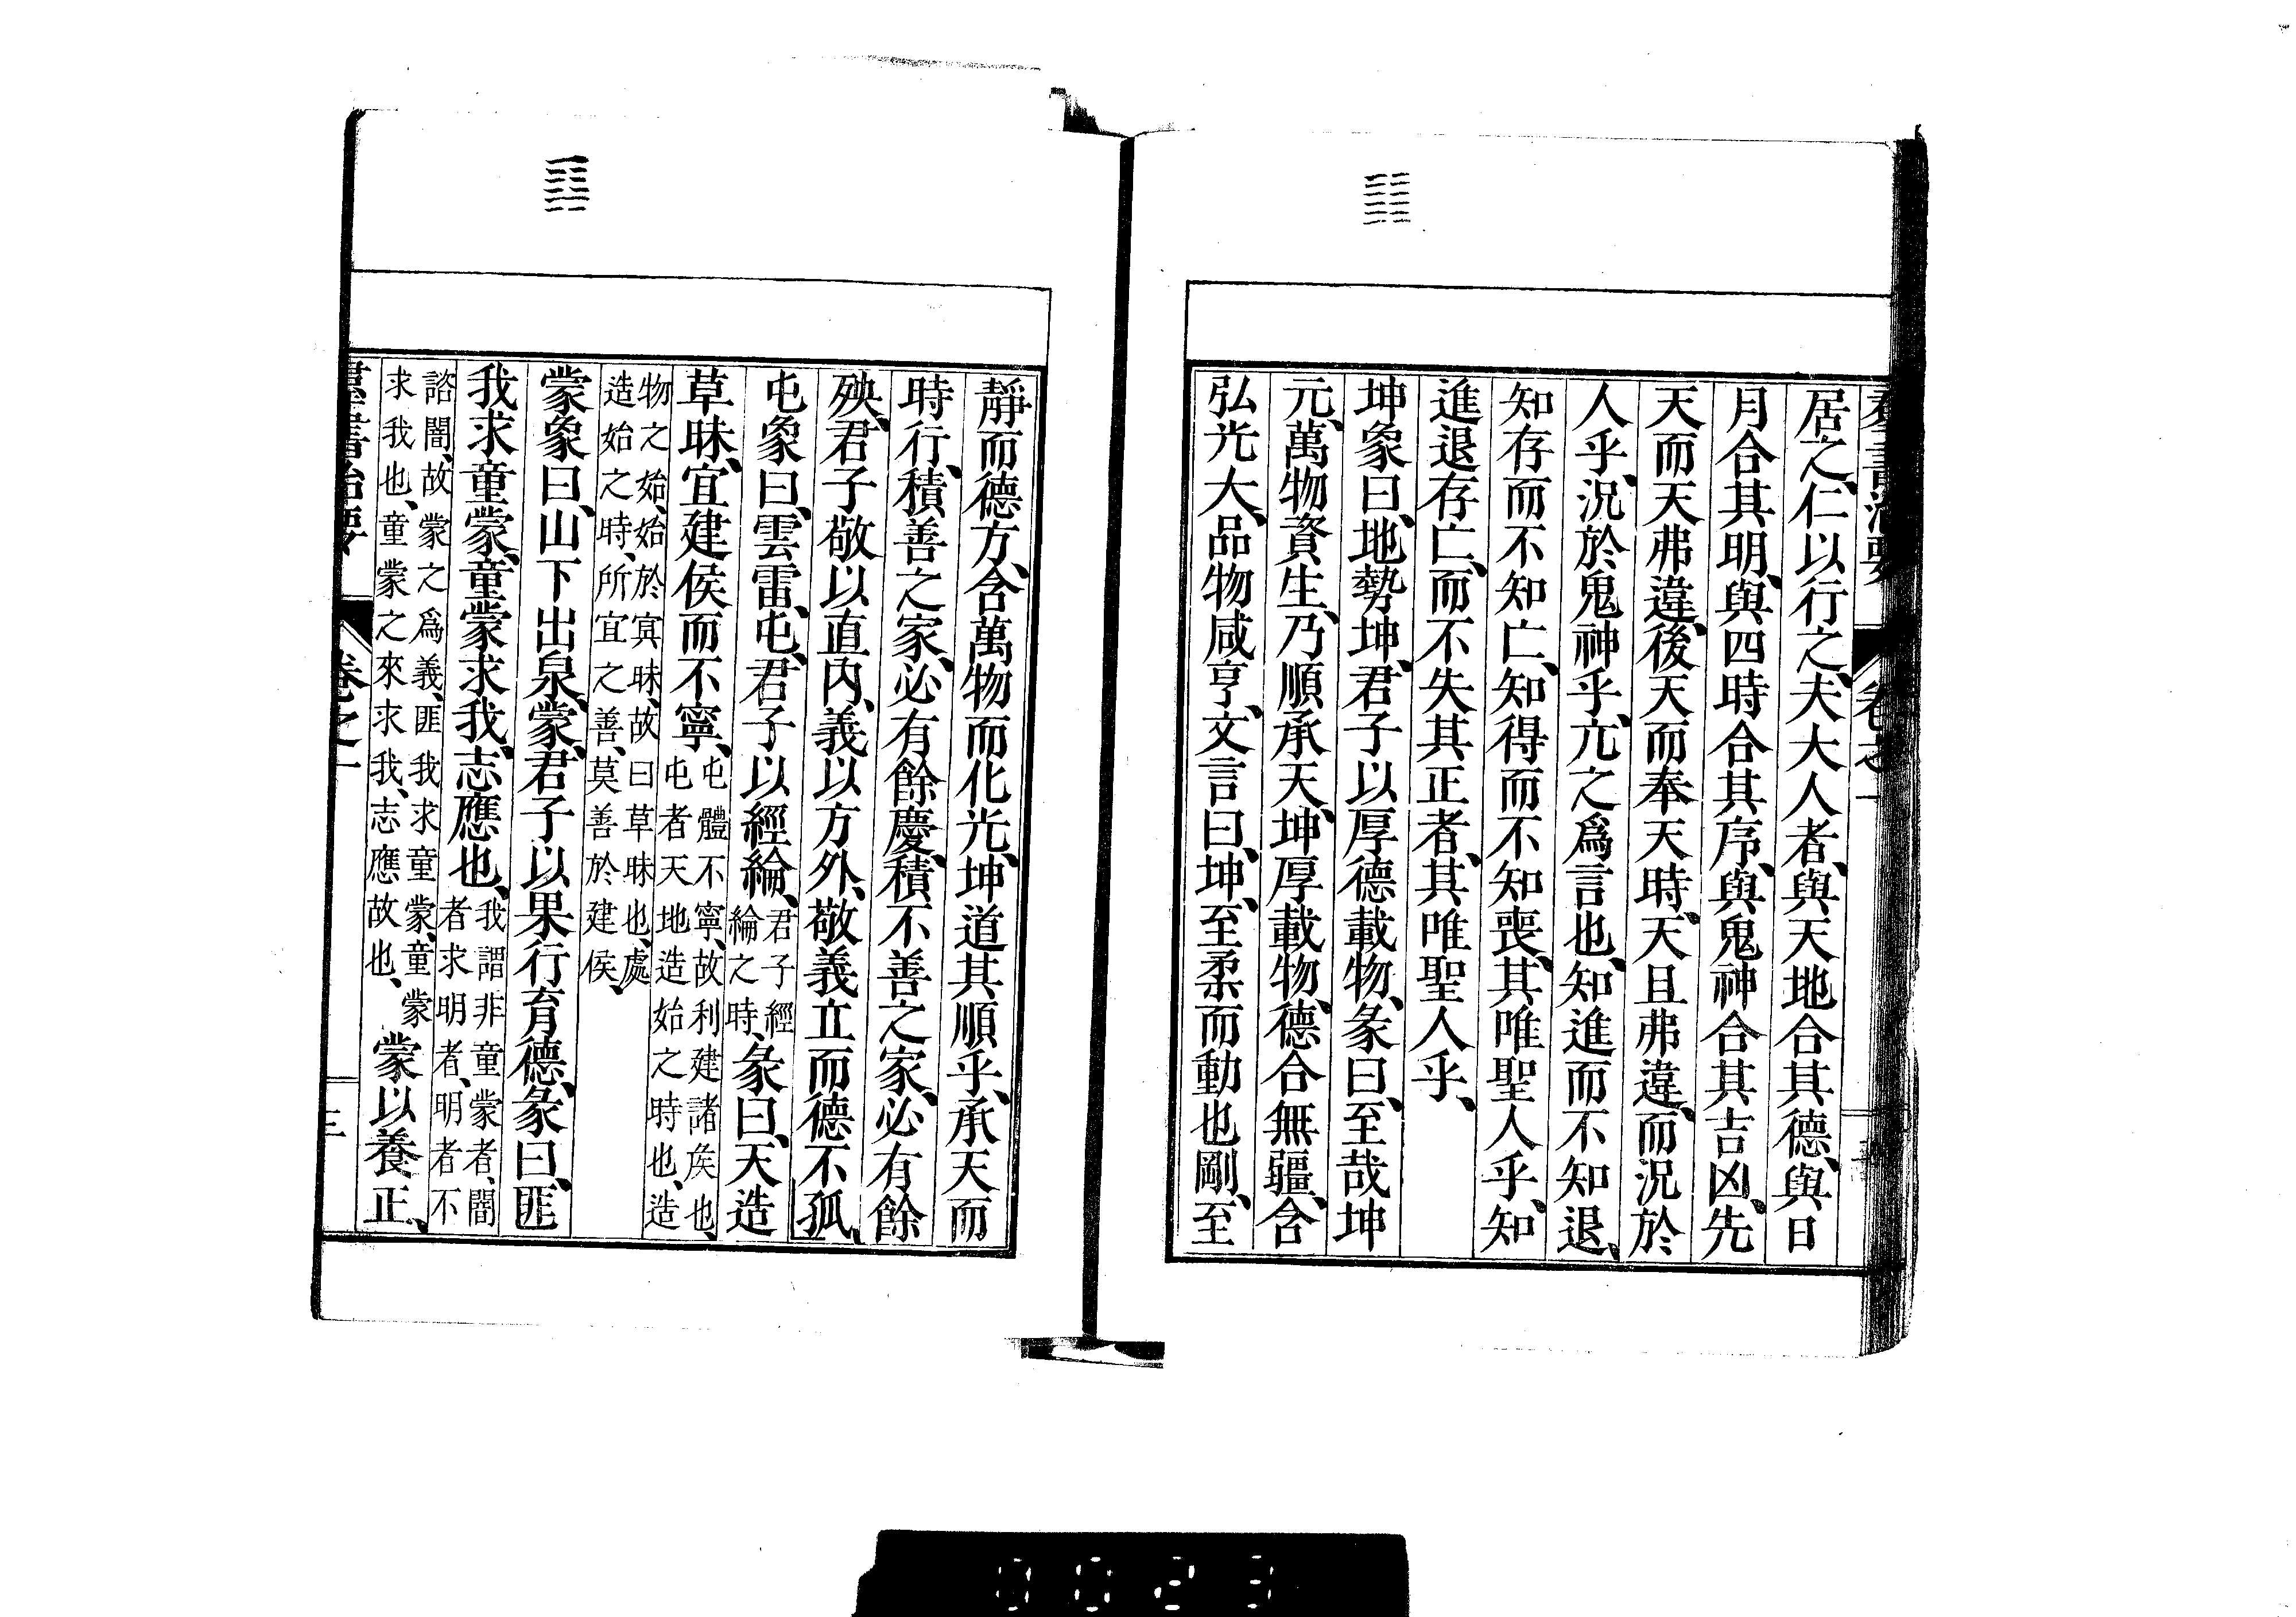 居之、仁以行之、夫大人者、與天地合其德、與日
月合其明、與四時合其序、與鬼神合其吉凶、先
天而天弗違、後天而奉天時、天且弗違、而況於
人乎、況於鬼神乎、亢之爲言也、知進而不知退、
知存而不知亡、知得而不知喪、其唯聖人乎、知
進退存亡、而不失其正者、其唯聖人乎、
坤象曰、地勢坤、君子以厚德載物、彖曰、至哉坤
元、萬物資生、乃順承天、坤厚載物、德合無疆、含
弘光大、品物咸亨、文言曰、坤、至柔而動也剛、至
靜而德方、含萬物而化光、坤道其順乎、承天而
時行、積善之家、必有餘慶、積不善之家、必有餘
殃、君子敬以直內、義以方外、敬義立而德不孤、
屯象曰、雲雷、屯、君子以經綸、君子經綸之時、彖曰、天造
草昧、宜建侯而不寧、屯體不寧、故利建諸侯也、屯者天地造始之時也、造
物之始、始於冥昧、故曰草昧也、處造始之時、所宜之善、莫善於建侯、
蒙象曰、山下出泉、蒙、君子以果行育德、彖曰、匪
我求童蒙、童蒙求我、志應也、我謂非童蒙者、闇者求明者、明者不
諮闇、故蒙之爲義、匪我求童蒙、童蒙求我也、童蒙之來求我、志應故也、蒙以養正、
羣書治要 卷之一 三
0023